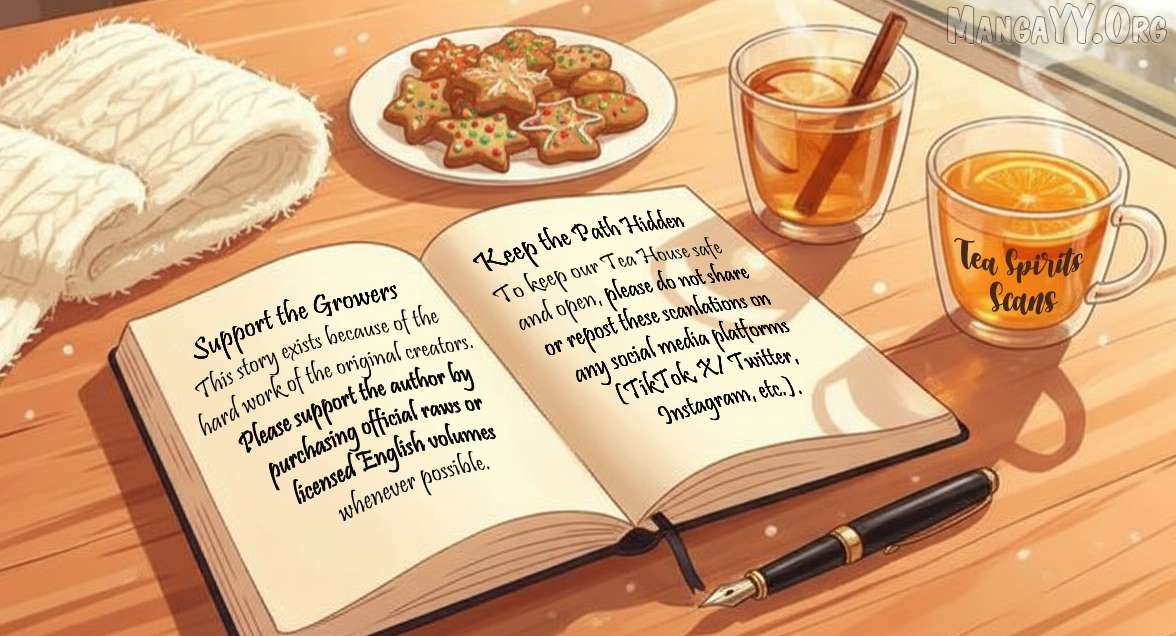 MangaYY.Org
Support the Growers
This story exists because of the
hard work of the original creators.
Please support the author by
purchasing official raws or
licensed English volumes
whenever possible.
Keep the Path Hidden
To keep our Tea House safe
and open, please do not share
or repost these scanlations on
any social media platforms
(TikTok, X/ Twitter,
Instagram, etc.).
Tea Spirits
Scans